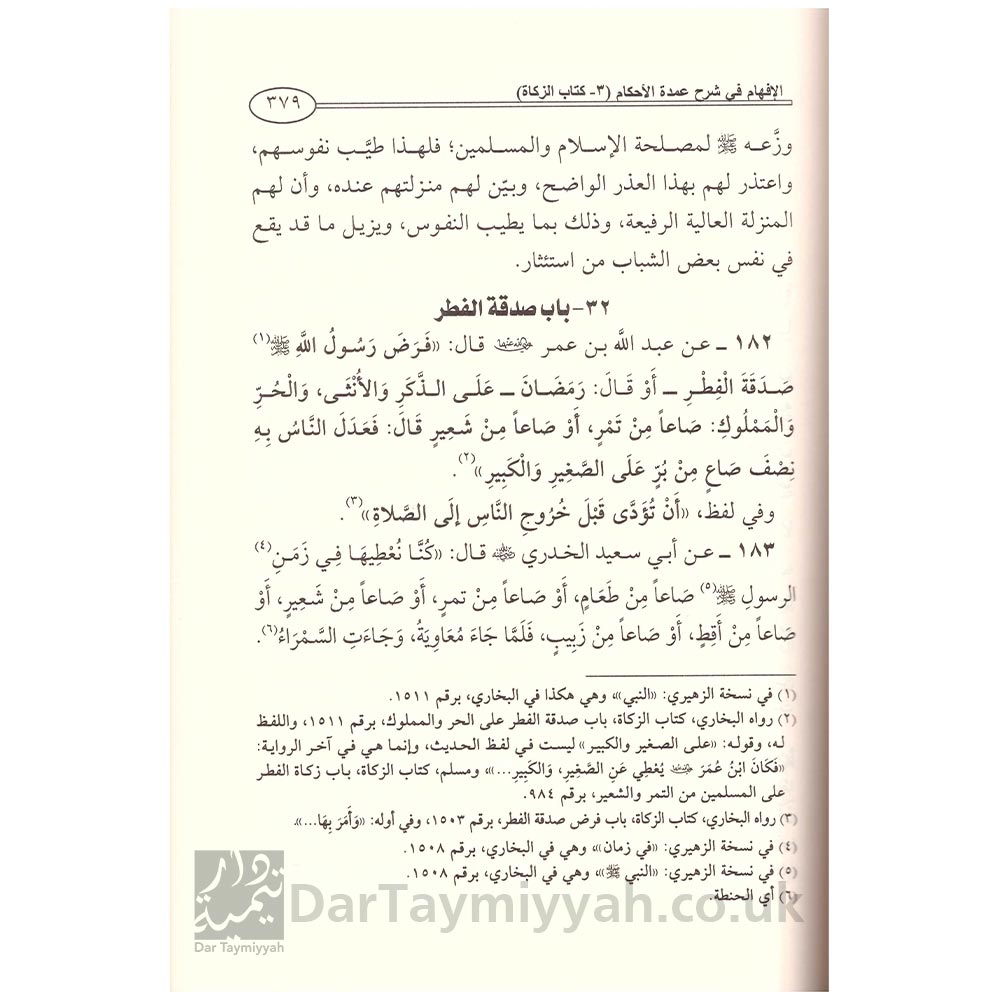 الإفهام في شرح عمدة الأحكام (٣- كتاب الزكاة)
٣٧٩
وزَّعـه ﷺ لمـصلحة الإسـلام والمـسلمين؛ فلهـذا طيَّـب نفوسـهم،
واعتذر لهم بهذا العذر الواضح، وبيّن لهم منزلتهم عنده، وأن لهم
المنزلة العالية الرفيعة، وذلك بما يطيب النفوس، ويزيل ما قد يقع
في نفس بعض الشباب من استئثار.
٣٢- باب صدقة الفطر
١٨٢ ـ عن عبد الله بن عمر رضي الله عنهما قال: «فَرَضَ رَسُولُ اللَّهِ ﷺ(١)
صَدَقَةَ الْفِطْرِ ـ أَوْ قَالَ: رَمَضَانَ ـ عَلَى الذَّكَرِ وَالأُنْثَى، وَالْحُرِّ
وَالْمَمْلُوكِ: صَاعاً مِنْ تَمْرٍ، أَوْ صَاعاً مِنْ شَعِيرٍ قَالَ: فَعَدَلَ النَّاسُ بِهِ
نِصْفَ صَاعٍ مِنْ بُرٍّ عَلَى الصَّغِيرِ وَالْكَبِيرِ»(٢).
وفي لفظ، «أَنْ تُؤَدَّى قَبْلَ خُرُوجِ النَّاسِ إلَى الصَّلاةِ»(٣).
١٨٣ ـ عن أبي سعيد الخدري رضي الله عنه قال: «كُنَّا نُعْطِيهَا فِي زَمَنِ(٤)
الرسولِ ﷺ(٥) صَاعاً مِنْ طَعَامٍ، أَوْ صَاعاً مِنْ تمرٍ، أَوْ صَاعاً مِنْ شَعِيرٍ، أَوْ
صَاعاً مِنْ أَقِطٍ، أَوْ صَاعاً مِنْ زَبِيبٍ، فَلَمَّا جَاءَ مُعَاوِيَةُ، وَجَاءَتِ السَّمْرَاءُ(٦).
(١) في نسخة الزهيري: «النبي»، وهي هكذا في البخاري، برقم ١٥١١.
(٢) رواه البخاري، كتاب الزكاة، باب صدقة الفطر على الحر والمملوك، برقم ١٥١١، واللفظ
له، وقوله: «على الصغير والكبير» ليست في لفظ الحديث، وإنما هي في آخر الرواية:
«فَكَانَ ابْنُ عُمَرَ رضي الله عنهما يُعْطِي عَنِ الصَّغِيرِ، وَالكَبِيرِ...»، ومسلم، كتاب الزكاة، باب زكاة الفطر
على المسلمين من التمر والشعير، برقم ٩٨٤.
(٣) رواه البخاري، كتاب الزكاة، باب فرض صدقة الفطر، برقم ١٥٠٣، وفي أوله: «وَأَمَرَ بِهَا...».
(٤) في نسخة الزهيري: «في زمان»، وهي في البخاري، برقم ١٥٠٨.
(٥) في نسخة الزهيري: «النبي ﷺ»، وهي في البخاري، برقم ١٥٠٨.
(٦) أي الحنطة.
دار تيمية
Dar Taymiyyah
DarTaymiyyah.co.uk